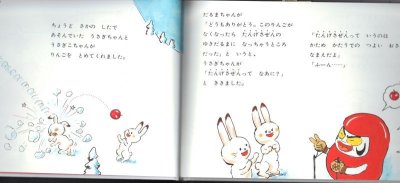 ちょうど さかの したで
あそんでいた うさぎちゃんと
うさぎこちゃんが
りんごを とめてくれました。
だるまちゃんが
「どうもありがとう。このりんごが
なくなったら たんげさぜんの
ゆきだるまに なっちゃうところ
だった」と いうと、
うさぎちゃんが
「たんげさぜんって なあに？」
と ききました。
「たんげさぜんって いうのは
かため かたうでの つよい おさ
なまえだよ」
「ふーん……」